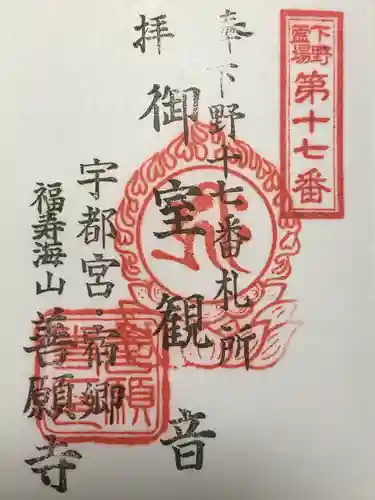 下野
霊場
第十七番
奉拝
下野十七番札所
御室観音
宇都宮・宿郷
福寿海山
善願寺